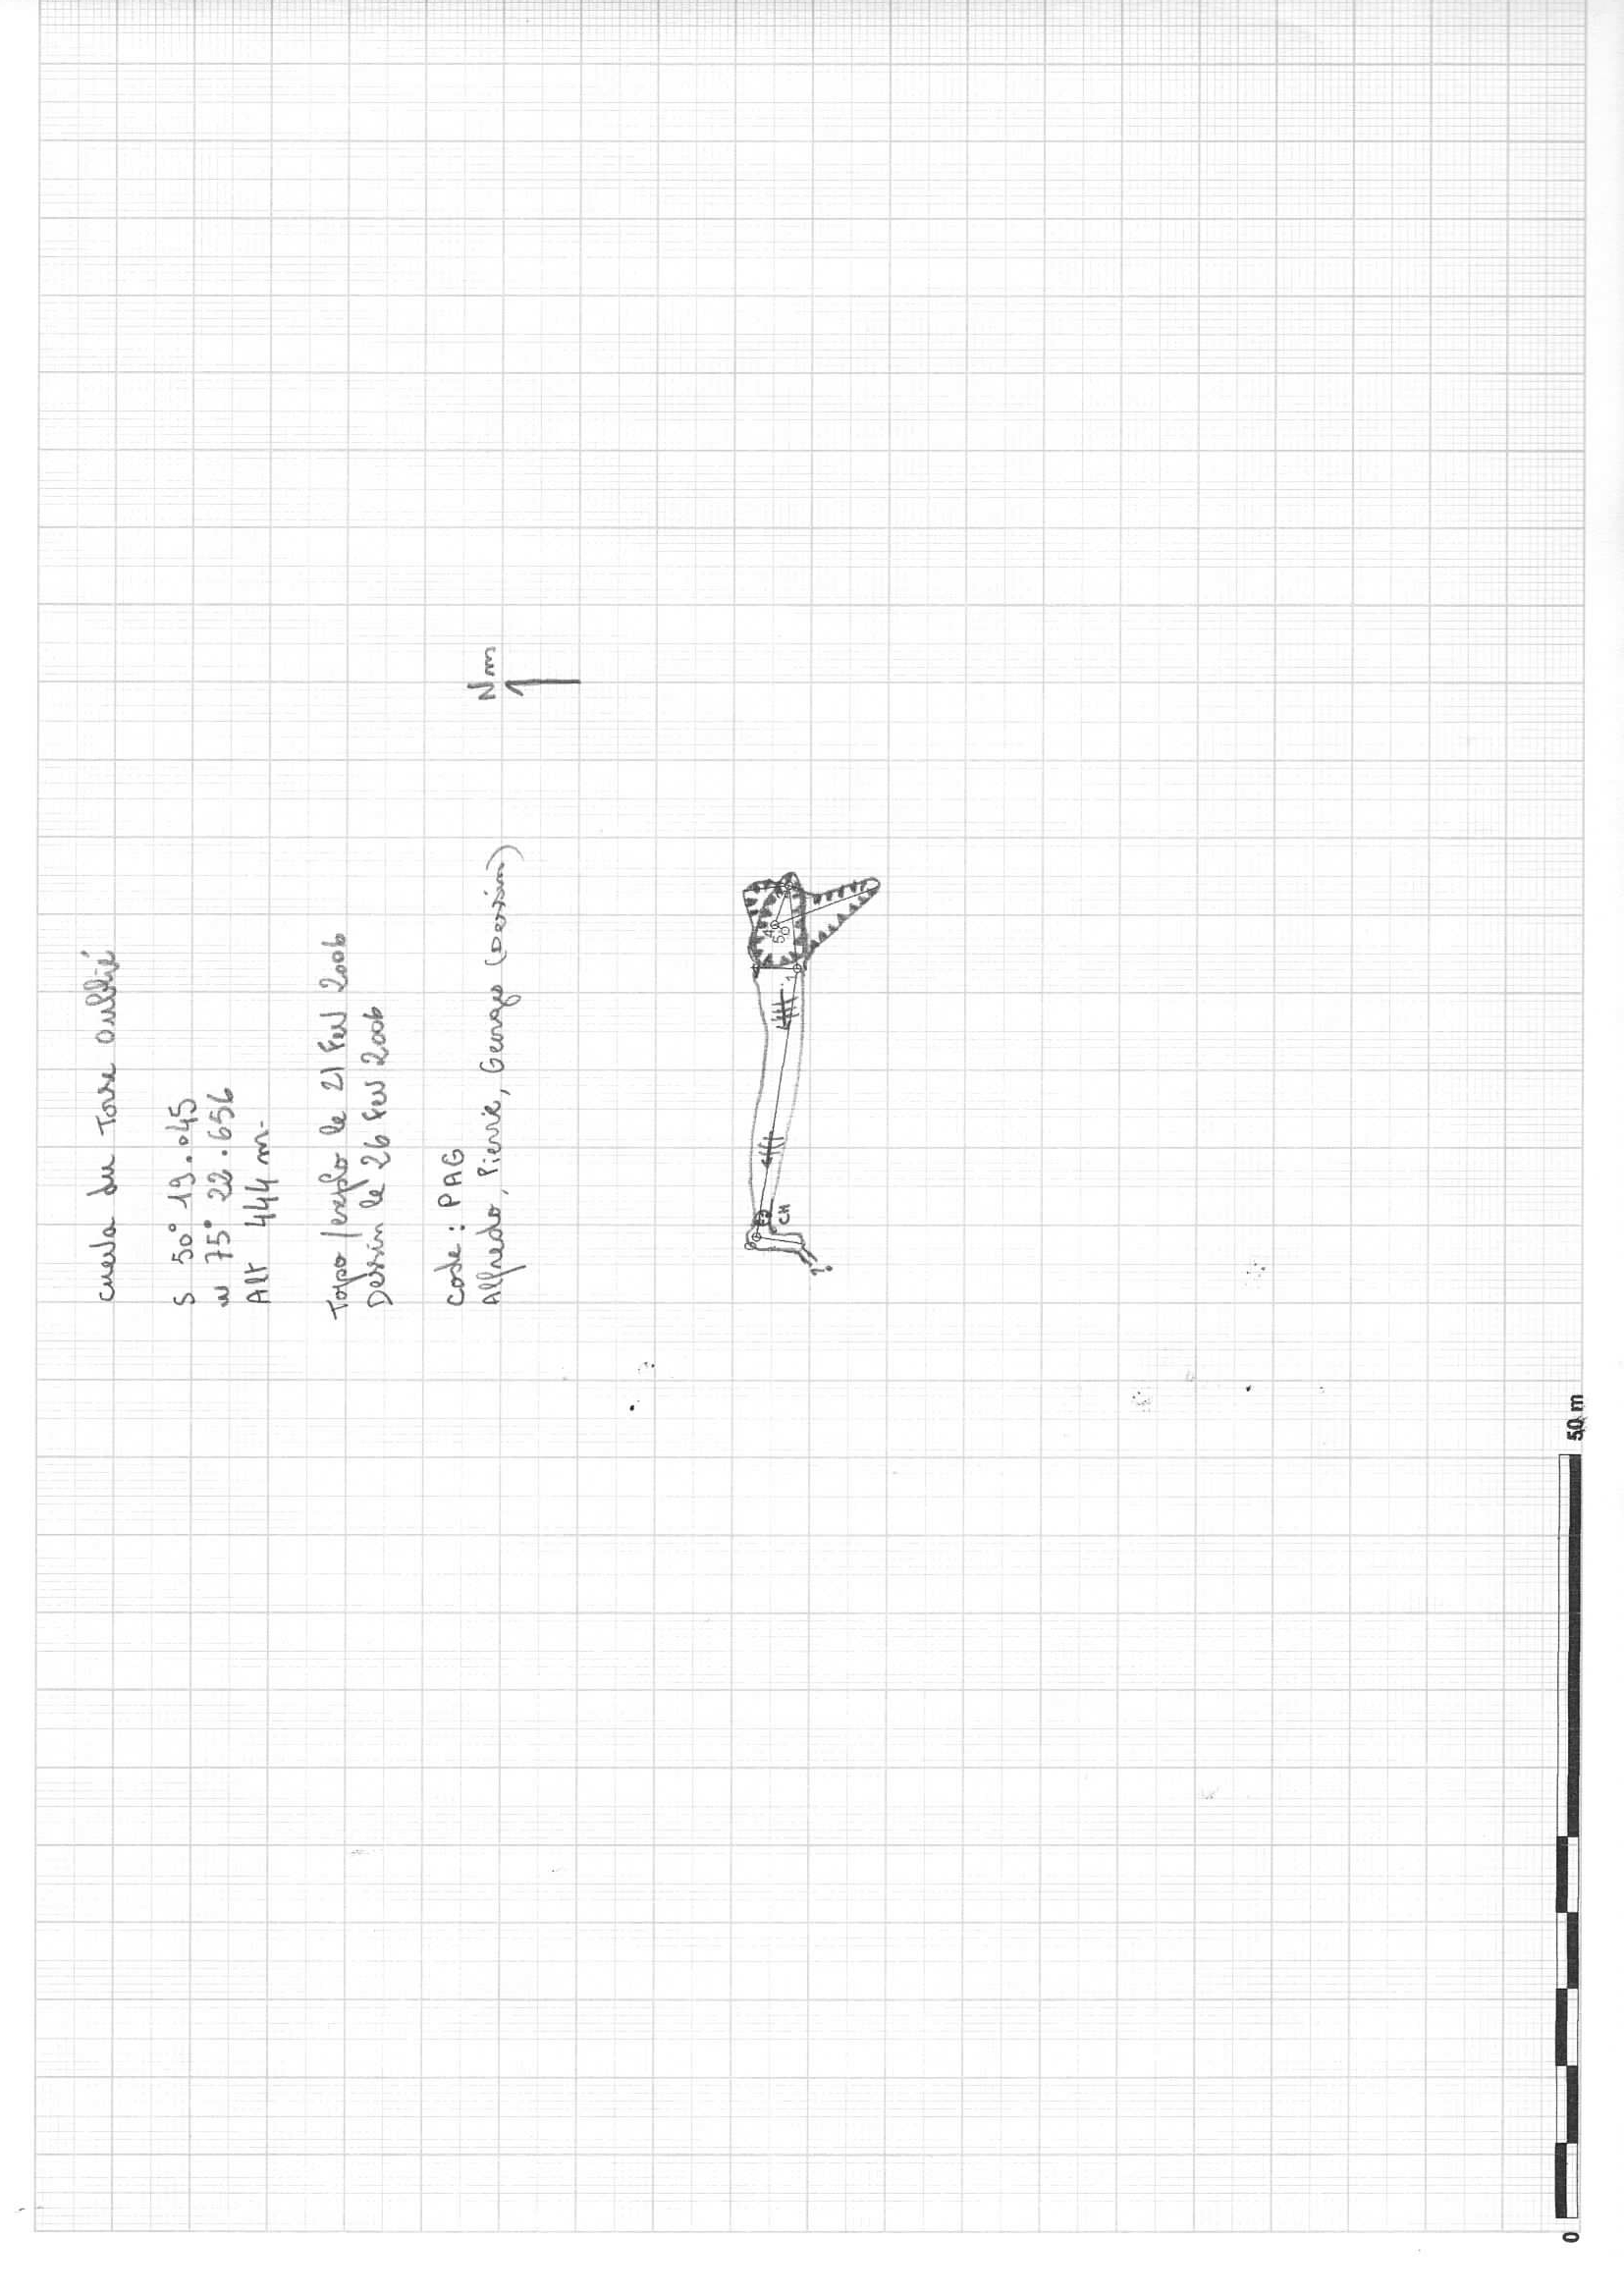 cueva du Torse oublié
S 50° 19.045
W 75° 22.656
Alt 444 m.
Topo/explo le 21 Fev 2006
Dessin le 26 Fev 2006
Code : PAG
Alfredo, Pierre, Georges (Dessin)
Nm
4
5
1
CH
?
0
50 m